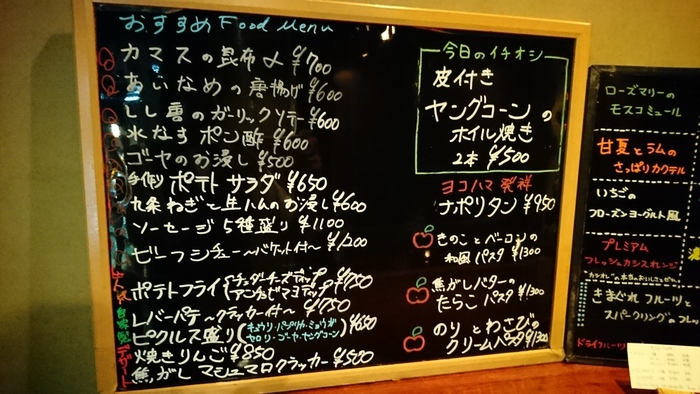 おすすめ Food Menu
カマスの昆布〆 ¥700
あいなめの唐揚げ ¥600
しし唐のガーリックソテー ¥600
水なす ポン酢 ¥600
ゴーヤのお浸し ¥500
手作り ポテトサラダ ¥650
九条ねぎと生ハムのお浸し ¥600
ソーセージ 5種盛り ¥1100
ビーフシチュー〜バケット付〜 ¥1200
ポテトフライ
チェダーチーズディップ
アンチョビマヨディップ
¥750
レバーパテ〜クラッカー付〜 ¥750
ピクルス盛り
キュウリ・パプリカ・ミョウガ
セロリ・ゴーヤ・ヤングコーン
¥650
焼きりんご ¥850
焦がしマシュマロクラッカー ¥500
自家製
デザート
今日のイチオシ
皮付き
ヤングコーンの
ホイル焼き
2本 ¥500
ヨコハマ発祥
ナポリタン ¥950
きのことベーコンの
和風パスタ ¥1300
焦がしバターの
たらこパスタ ¥1300
のりとわさびの
クリームパスタ ¥1300
ローズマリーの
モスコミュール
甘夏とラムの
さっぱりカクテル
いちごの
フローズンヨーグルト風
プレミアム
フレッシュカシスオレンジ
きまぐれ フルーツ
スパークリングのフレ
ドライフルーツ